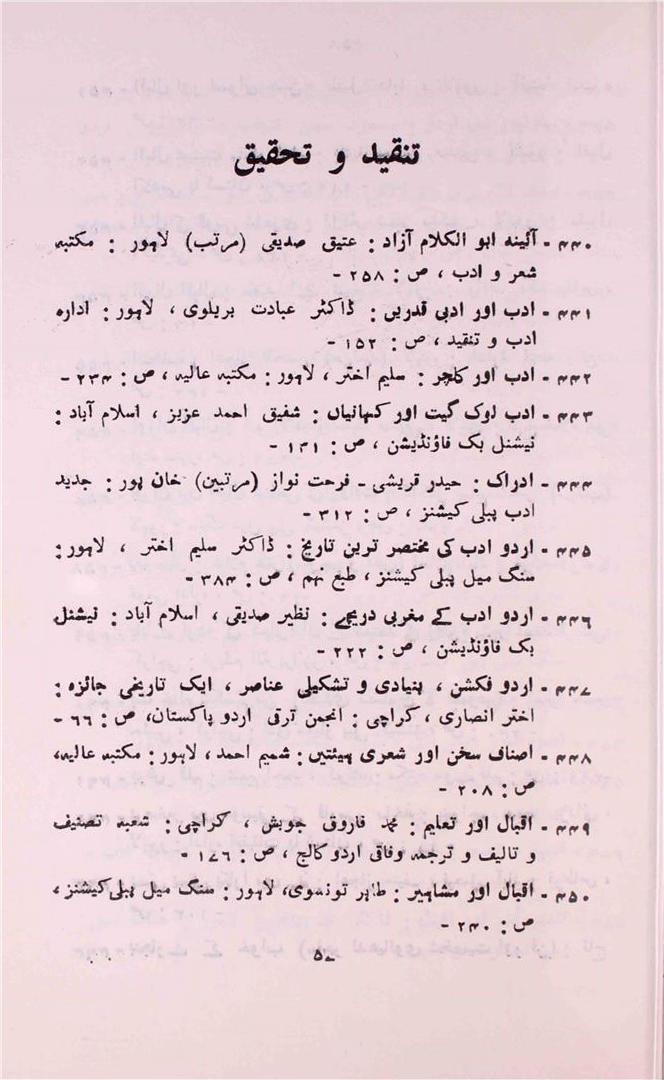 تنقید و تحقیق
۴۴۰ - آئینہ ابو الکلام آزاد : عتیق صدیقی (مرتب) لاہور : مکتبہ
شعر و ادب ، ص : ۲۵۸ -
۴۴۱ - ادب اور ادبی قدریں : ڈاکٹر عبادت بریلوی ، لاہور : ادارہ
ادب و تنقید ، ص : ۱۵۲ -
۴۴۲ - ادب اور کلچر : سلیم اختر ، لاہور : مکتبہ عالیہ ، ص : ۲۳۴ -
۴۴۳ - ادب لوک گیت اور کہانیاں : شفیق احمد عزیز ، اسلام آباد :
نیشنل بک فاؤنڈیشن ، ص : ۱۳۱ -
۴۴۴ - ادراک : حیدر قریشی - فرحت نواز (مرتبین) خان پور : جدید
ادب پبلی کیشنز ، ص : ۳۱۲ -
۴۴۵ - اردو ادب کی مختصر ترین تاریخ : ڈاکٹر سلیم اختر ، لاہور :
سنگ میل پبلی کیشنز ، طبع نہم ، ص : ۳۸۴ -
۴۴۶ - اردو ادب کے مغربی دریچے : نظیر صدیقی ، اسلام آباد : نیشنل
بک فاؤنڈیشن ، ص : ۲۲۲ -
۴۴۷ - اردو فکشن ، بنیادی و تشکیلی عناصر ، ایک تاریخی جائزہ :
اختر انصاری ، کراچی : انجمن ترقی اردو پاکستان، ص : ۶۶ -
۴۴۸ - اصناف سخن اور شعری ہیئتیں : شمیم احمد ، لاہور : مکتبہ عالیہ،
ص : ۲۰۸ -
۴۴۹ - اقبال اور تعلیم : محمد فاروق جویش ، کراچی : شعبہ تصنیف
و تالیف و ترجمہ وفاقی اردو کالج ، ص : ۱۷۶ -
۴۵۰ - اقبال اور مشاہیر : طاہر تونسوی، لاہور : سنگ میل پبلی کیشنز ،
ص : ۲۴۰ -
۵۷